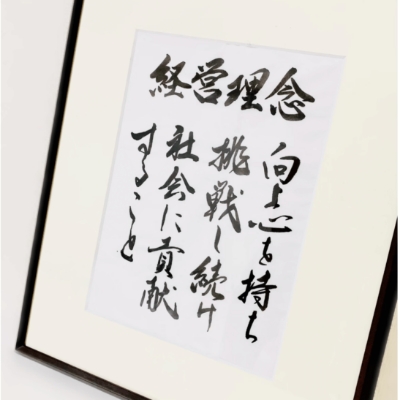 経営理念
向上心を持ち
挑戦し続け
社会に貢献
すること